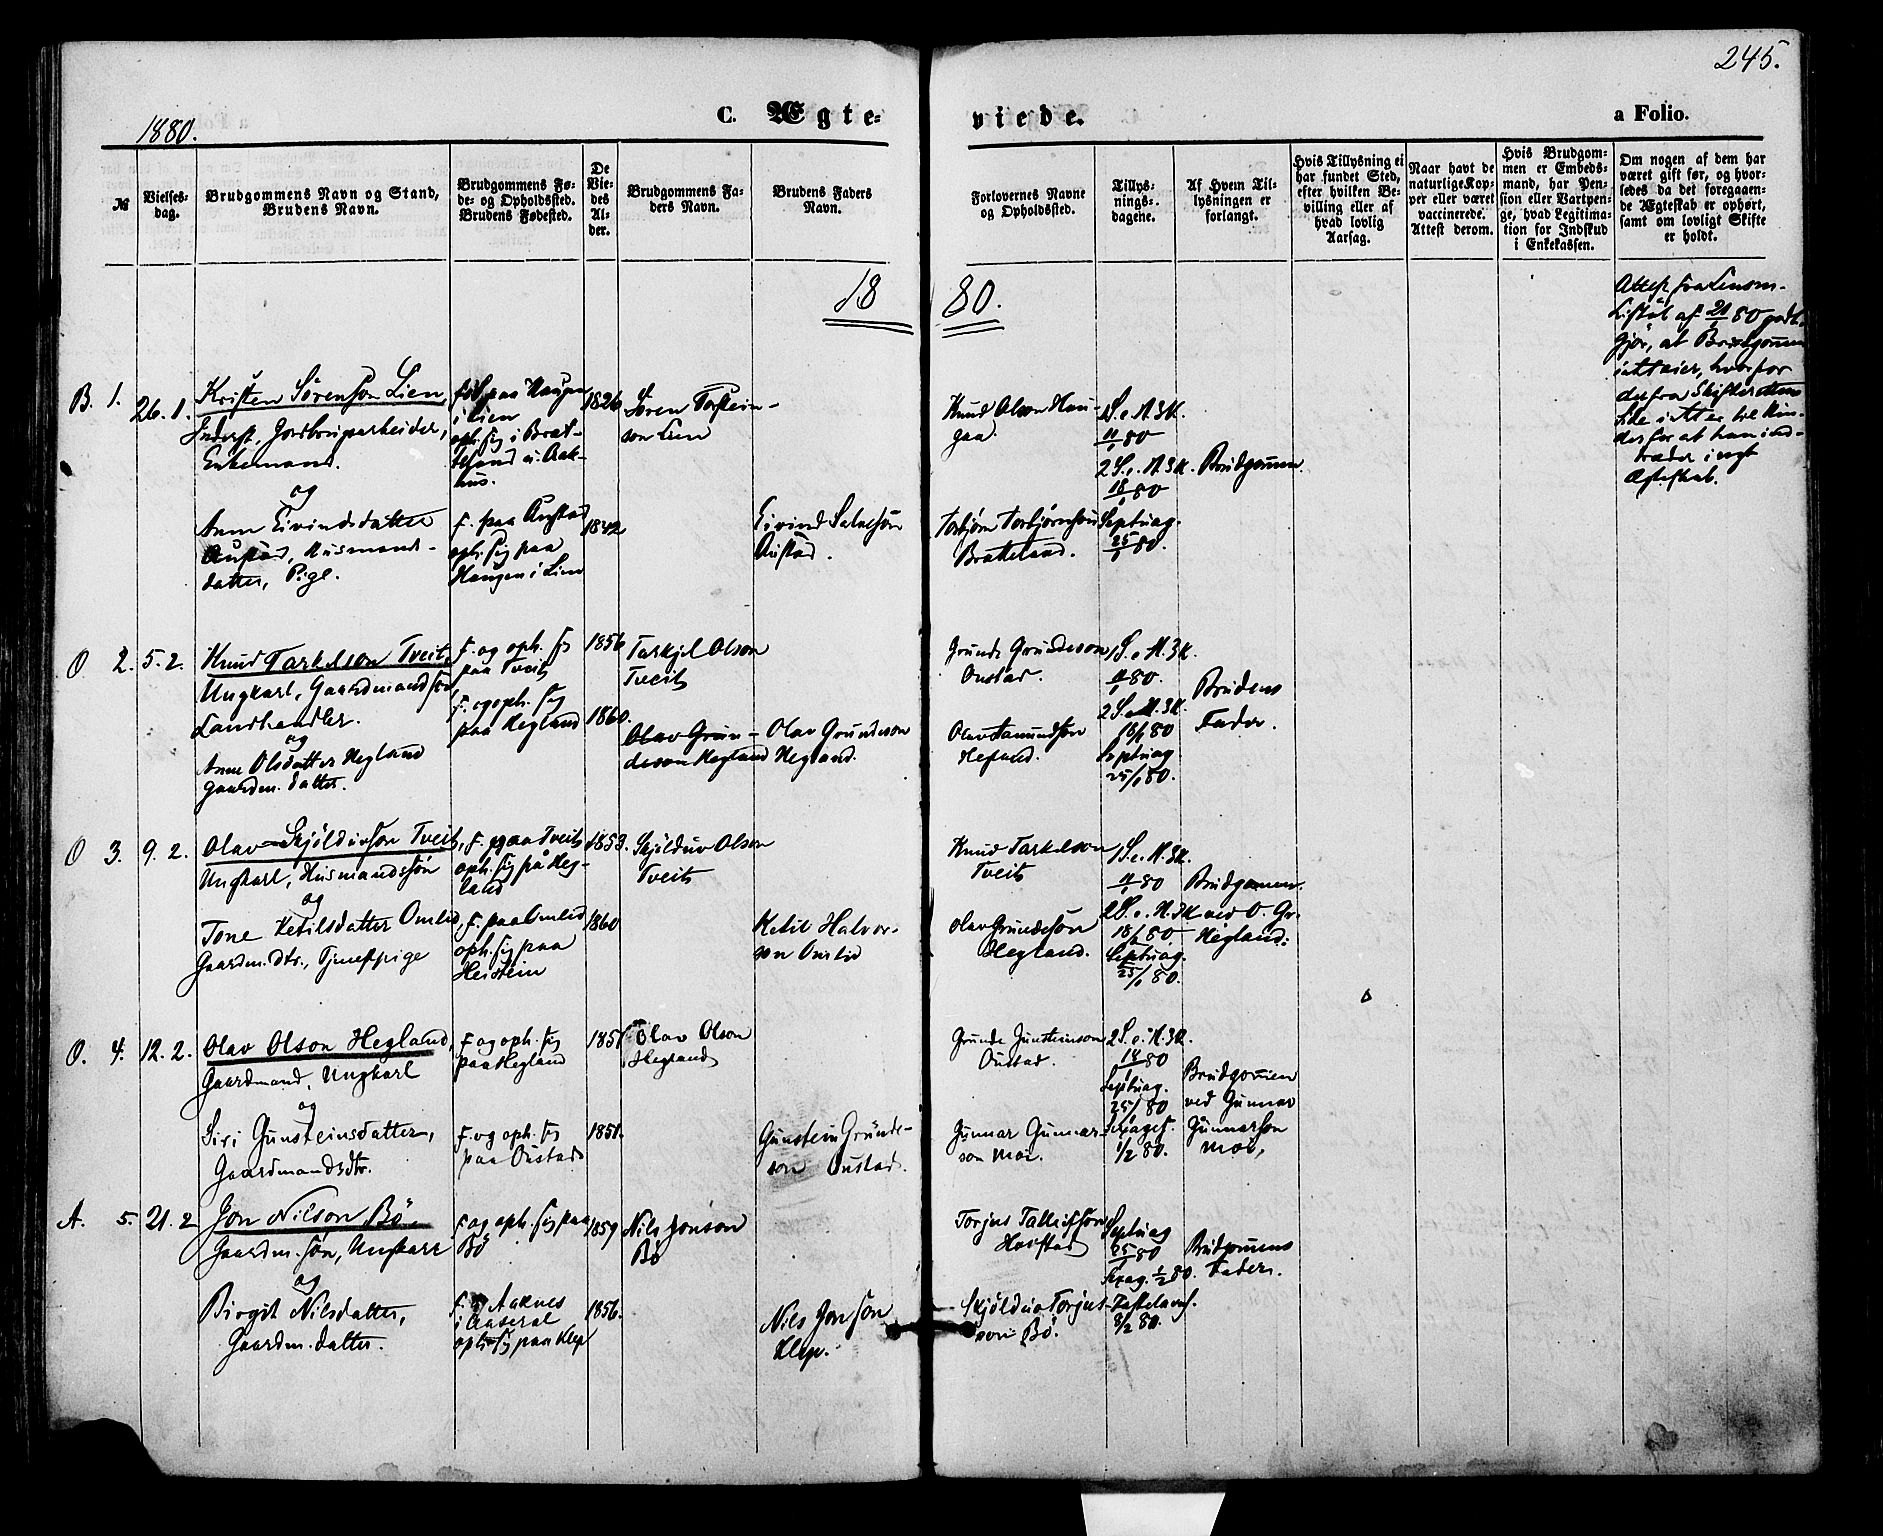 245.
1880.
C. Ægte-
viede.
a Folio.
№
Vielses-
dag.
Brudgommens Navn og Stand,
Brudens Navn.
Brudgommens Fø-
de- og Opholdssted.
Brudens Fødested.
De
Vie-
des
Al-
der.
Brudgommens Fa-
ders Navn.
Brudens Faders
Navn.
Forlovernes Navne
og Opholdssted.
Tillys-
nings-
dagene.
Af Hvem Til-
lysningen er
forlangt.
Hvis Tillysning ei
har fundet Sted,
efter hvilken Be-
villing eller af
hvad lovlig
Aarsag.
Naar havt de
naturlige Kop-
per eller været
vaccinerede.
Attest derom.
Hvis Brudgom-
men er Embeds-
mand, har Pen-
sion eller Vartpen-
ge, hvad Legitima-
tion for Indskud
i Enkekassen.
Om nogen af dem har
været gift før, og hvor-
ledes da det foregaaen-
de Ægteskab er ophørt,
samt om lovligt Skifte
er holdt.
18 80.
B. 1. 26. 1.
Kristen Sørenson Lien
Inderst, Jordbrugsarbeider,
Enkemand.
og
Anne Eivindsdatter
Austad, Husmands-
datter, Pige.
født paa Haugen
i Lien
oph. sig i Brat-
teland
f. paa Austad
oph. sig paa
Haugen i Lien
1826
1842
Søren Torstein-
son Lien
Eivind Salvesøn
Austad.
Knud Olson Hau-
gaa.
Torbjørn Torbjørnson
Bratteland.
1 S. e. H. 3 K.
11/1 80
2 S. e. H. 3 K.
18/1 80
Septuag.
25/1 80.
Brudgommen.
Attest fra Lensm.
af 21/1 80 godt-
gjør, at Brudgommen
intet eier, hvorfor
derfra Skifterettens
Side intet er til Hin-
der for at han ind-
træder i nyt
Ægteskab.
O 2. 5. 2.
Knud Tarkelson Tveit,
Ungkarl, Gaardmandssøn
Landhandler.
og
Anne Olsdatter Hegland
gaardm. datter.
f. og oph. sig
paa Tveit
f. og oph. sig
paa Hegland
1856
1860.
Tarkjel Olson
Tveit
Olav Grun-
deson Hegland
Olav Grundeson
Hegland.
Grunde Grundeson
Oustad.
Olav Aamundsøn
Hegland.
1 S. e. H. 3 K.
11/1 80.
2 S. e. H. 3 K.
18/1 80
Septuag
25/1 80.
Brudens
Fader.
O 3. 9. 2.
Olav Skjölduvson Tveit,
Ungkarl, Husmandssøn
og
Tone Ketilsdatter Omlid,
Gaardm. dtr., Tjenestpige
f. paa Tveit
oph. sig på Heg-
land
f. paa Omlid
oph. sig paa
Heistein
1853.
1860
Skjölduv Olson
Tveit
Ketil Halvor-
son Omlid
Knud Tarkelson
Tveit
Olav Grundesøn
Hegland.
1 S. e. H. 3 K.
11/1 80
2 S. e. H. 3 K
18/1 80.
Septuag.
25/1 80.
Brudgommen.
ved O. Gr.
Hegland.
O. 4. 12. 2.
Olav Olson Hegland,
Gaardmand, Ungkarl
og
Siri Gunsteinsdatter,
Gaardmandsdtr.
f. og oph. sig
paa Hegland
f. og oph. sig
paa Oustad
1851
1851.
Olav Olson
Hegland
Gunstein Grunde-
son Oustad.
Grunde Gunsteinson
Oustad.
Gunnar Gunnar-
son Moi.
2 S. e. H. 3 K.
18/1 80
Septuag.
25/1 80
Sexages.
1/2 80.
Brudgommen
ved Gunnar
Gunnarson
Moi,
A. 5. 21. 2
Jon Nilson Bö.
Gaardm. søn, Ungkarl
og
Birgit Nilsdatter,
Gaardm. datter.
f. og oph. sig paa
Bö
f. Aaknes
i Aaseral
oph. sig paa Klep
1859
1856.
Nils Jonson
Bö
Nils Jonson
Klep.
Torjus Tallefssøn
Haistad
Skjölduv Torjus-
son Bö.
Septuag
25/1 80
Sexag. 1/2 80.
Fastelavns.
8/2 80.
Brudgommens
Fader.